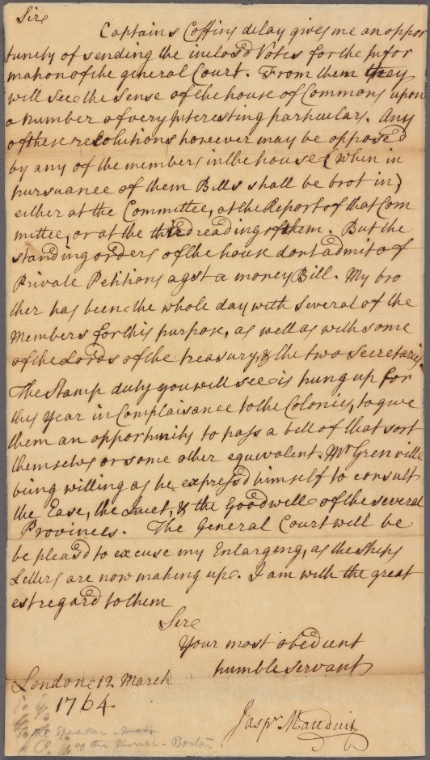 Sire
Captains Coffins delay gives me an oppor
tunity of sending the inclos'd Votes for the infor
mation of the general Court. From them they
will see the sense of the house of Commons upon
a number of very Interesting particulars. Any
of these resolutions however may be oppos'd
by any of the members in the house (when in
pursuance of them Bills shall be brot in)
either at the Committee, at the Report of that Com
mittee, or at the third reading of them. But the
standing orders of the house dont admit of
Private Petitions agst a money Bill. My bro
ther has been the whole day with several of the
Members for this purpose, as well as with some
of the Lords of the treasury, & the two Secretaries.
The Stamp duty you will see is hung up for
this Year in Complaisance to the Colonies, to give
them an opportunity to pass a bill of that sort
themselves or some other equivalent. Mr Grenville
being willing as he express'd himself to consult
the Ease, the Quiet, & the Goodwill of the several
Provinces. The General Court will be
be pleas'd to excuse my Enlarging, as the Ships
Letters are now making up. I am with the great
est regard to them
Sire
Your most obedient
humble servant
London 12 March
1764
Jaspr Mauduit
Speaker
of the Boston